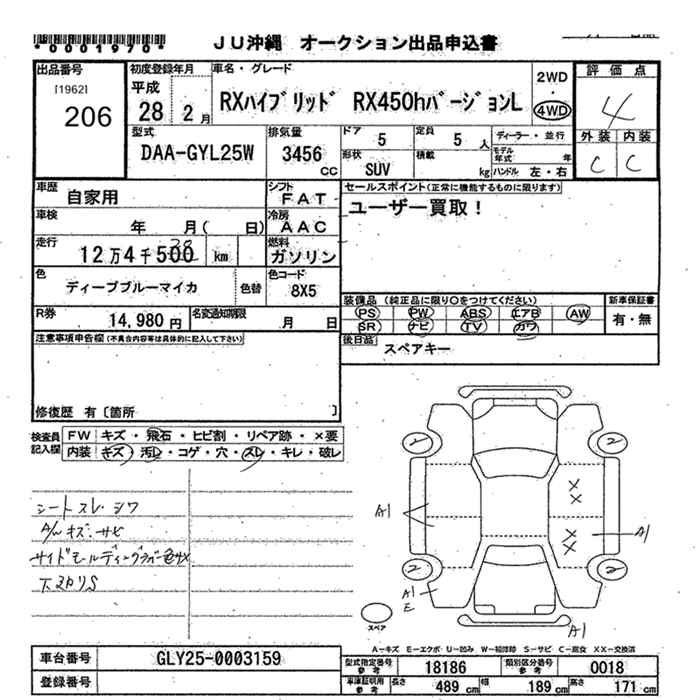 *0001970*
ＪＵ沖縄　オークション出品申込書
出品番号 [1962] 206
初度登録年月 平成 28 2月
車名・グレード RXハイブリッド RX450hバージョンL
2WD・4WD
評価点 4
外装 C 内装 C
型式 DAA-GYL25W
排気量 3456 CC
ドア 5 定員 5 人
形状 SUV 積載 kg
ディーラー・並行
モデル年式 年
ハンドル 左・右
車歴 自家用
シフト FAT
セールスポイント(正常に機能するものに限ります)
ユーザー買取！
車検 年 月( 日)
冷房 AAC
走行 12万4千500 km
燃料 ガソリン
色 ディープブルーマイカ 色替
色コード 8X5
装備品 (純正品に限り○をつけてください)
PS PW ABS エアB AW
SR ナビ TV カワ
新車保証書 有・無
R券 14,980円
名変通知期限 月 日
後日品 スペアキー
注意事項申告欄(不具合内容等は具体的に記入して下さい)
修復歴 有〔箇所 〕
検査員記入欄
FW キズ・飛石・ヒビ割・リペア跡・×要
内装 キズ・汚レ・コゲ・穴・スレ・キレ・破レ
シートスレ シワ
A/W キズ・サビ
下スリS
2 2 2 2
A1
A1
A1
E
A1
××
××
スペア
A－キズ E－エクボ U－凹み W－補修跡 S－サビ C－腐食 XX－交換済
車台番号 GLY25-0003159
登録番号
型式指定番号 参考 18186 類別区分番号 参考 0018
車庫証明用 参考 長さ 489 cm 幅 189 cm 高さ 171 cm